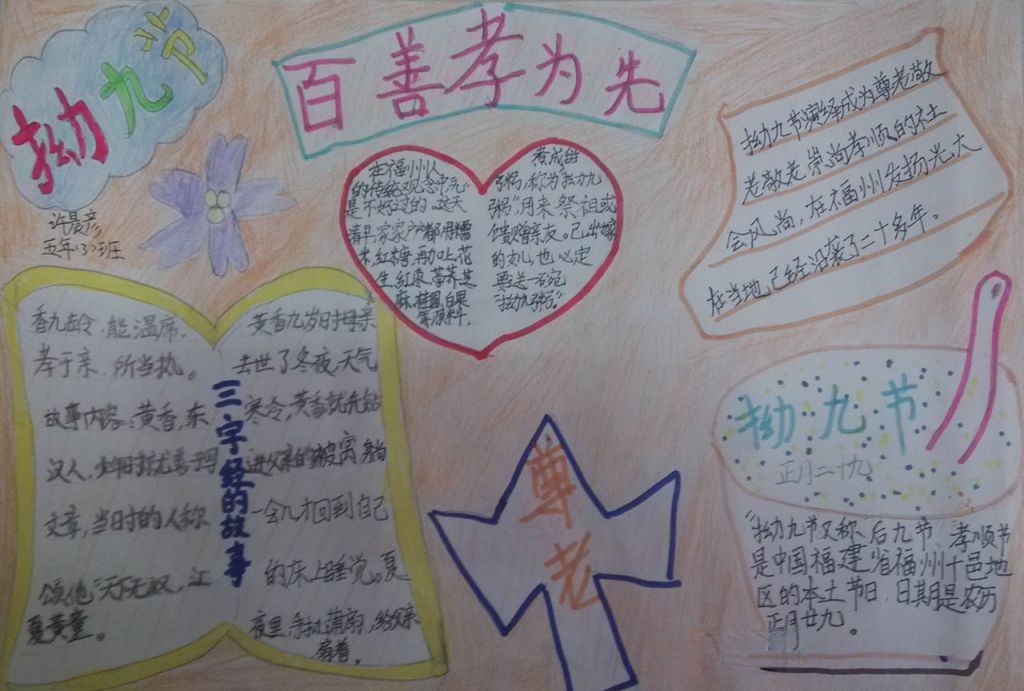 拗九节
许晨彦
五年(3)班
百善孝为先
在福州人
的传统观念中"九"
是不好过的。这天
清早家家户户都用糯
米、红糖,再加上花
生、红枣、荸荠、芝
麻、桂圆、白果
等原料,
煮成甜
粥,称为"拗九
粥"用来祭祖或
馈赠亲友。已出嫁
的女儿,也必定
要送一碗
"拗九粥"。
拗九节演绎成为尊老敬
老敬老崇尚孝顺的社
会风尚,在福州发扬光大
在当地已经沿袭了二十多年。
香九龄,能温席。
孝于亲,所当执。
故事内容:黄香,东
汉人,少年时就善写
文章,当时的人称
颂他"天下无双,江
夏黄童。
三字经的故事
黄香九岁时母亲
去世了冬夜,天气
寒冷,黄香就先钻
进父亲的被窝,躺
一会儿才回到自己
的床上睡觉。夏
夜里,手动蒲扇,给父亲
尊老
拗九节
正月二十九
"拗九节又称后九节、孝顺节
是中国福建省福州十邑地
区的本土节日,日期是农历
正月廿九。